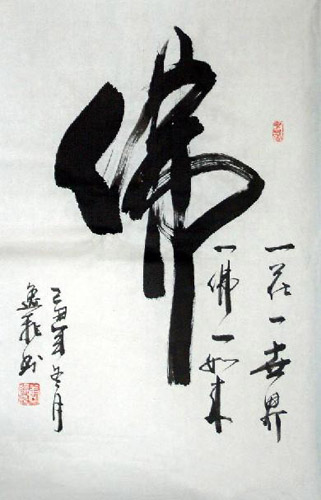 佛
一花一世界
一佛一如来
己丑年冬月